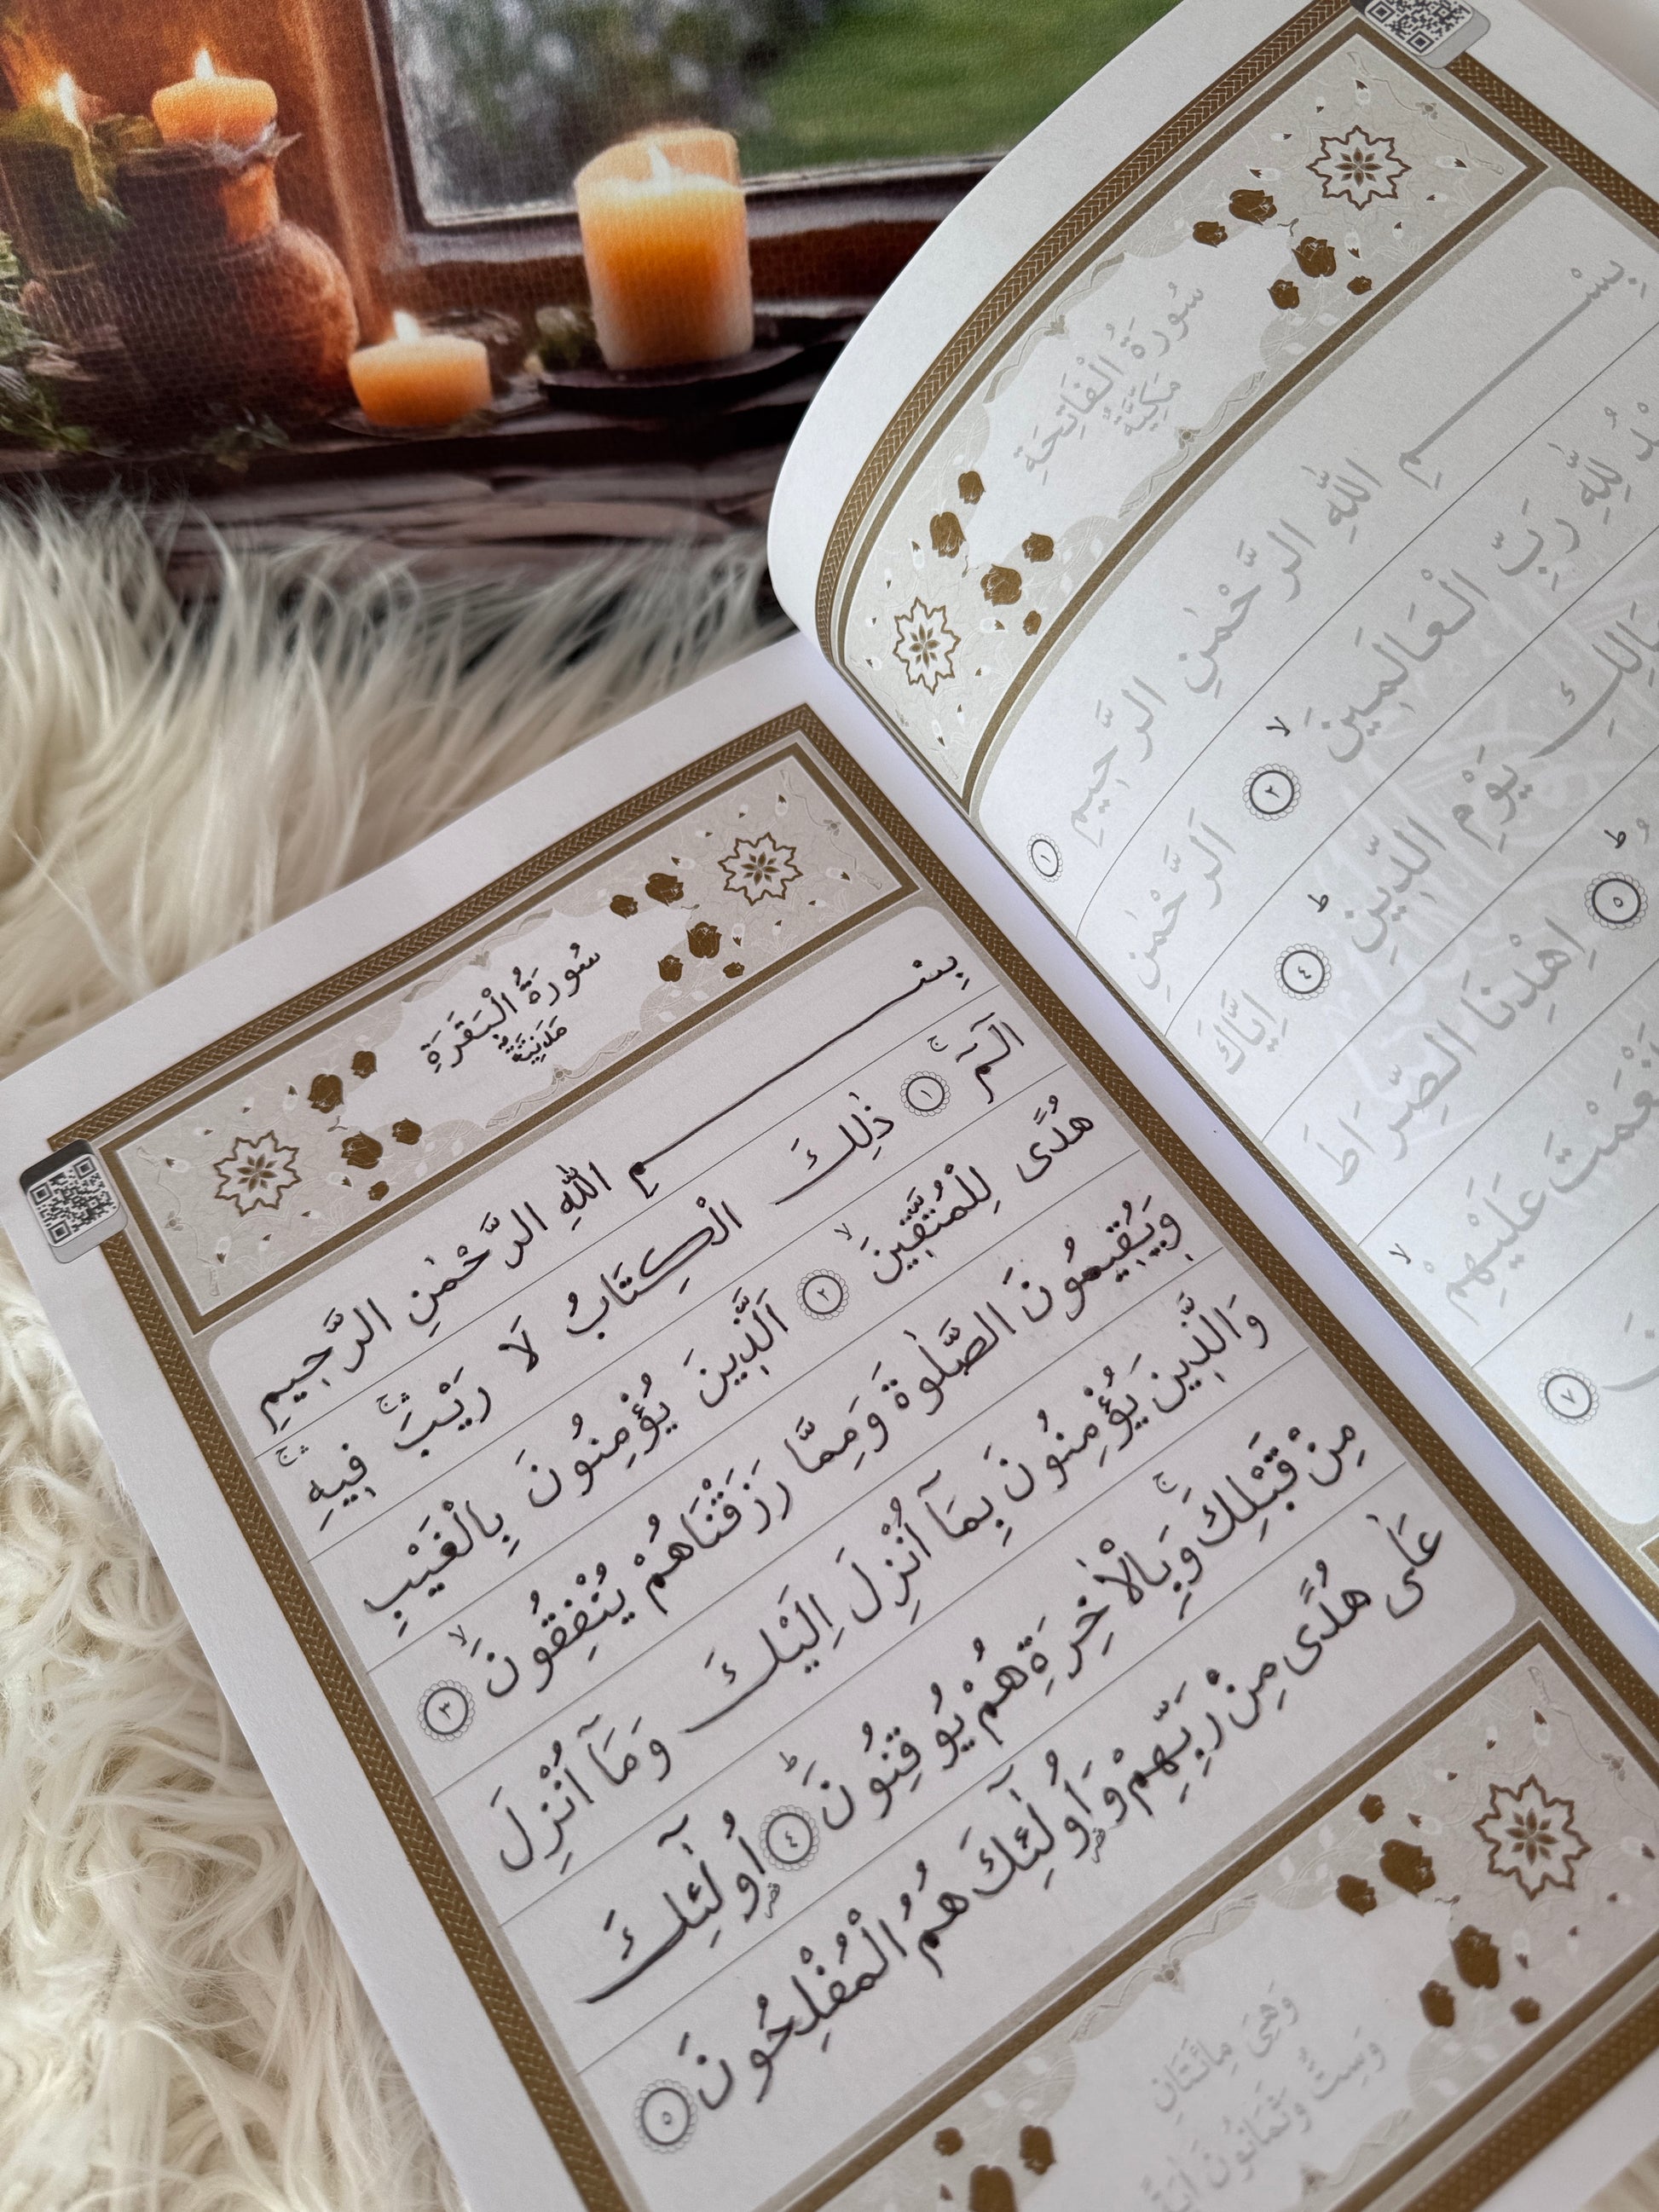 سُورَةُ الْفَاتِحَةِ
مَكِّيَّةٌ
بِسْمِ اللّٰهِ الرَّحْمٰنِ الرَّحِيمِ ١
لِلّٰهِ رَبِّ الْعَالَمِينَ ۙ ٢ اَلرَّحْمٰنِ
يَوْمِ الدِّينِ ۜ ٤ اِيَّاكَ
ۜ ٥ اِهْدِنَا الصِّرَاطَ
عَلَيْهِمْ ۙ
٧
سُورَةُ الْبَقَرَةِ
مَدَنِيَّةٌ
بِسْمِ اللّٰهِ الرَّحْمٰنِ الرَّحِيمِ
الٓمٓ ۚ ١ ذٰلِكَ الْكِتَابُ لَا رَيْبَ ۚۛ فِيهِ ۚۛ
هُدًى لِلْمُتَّقِينَ ۙ ٢ اَلَّذِينَ يُؤْمِنُونَ بِالْغَيْبِ
وَيُقِيمُونَ الصَّلٰوةَ وَمِمَّا رَزَقْنَاهُمْ يُنْفِقُونَ ۙ ٣
وَالَّذِينَ يُؤْمِنُونَ بِمَٓا اُنْزِلَ اِلَيْكَ وَمَٓا اُنْزِلَ
مِنْ قَبْلِكَ ۚ وَبِالْاٰخِرَةِ هُمْ يُوقِنُونَ ۜ ٤ اُو۬لٰٓئِكَ
عَلٰى هُدًى مِنْ رَبِّهِمْ وَاُو۬لٰٓئِكَ هُمُ الْمُفْلِحُونَ ٥
وَهِيَ مِائَتَانِ
وَسِتٌّ وَثَمَانُونَ اٰيَةً